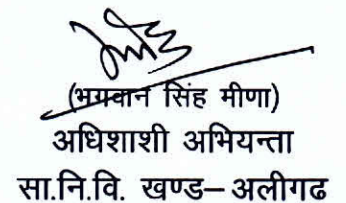 (भगवान सिंह मीणा)
अधिशाशी अभियन्ता
सा.नि.वि. खण्ड– अलीगढ